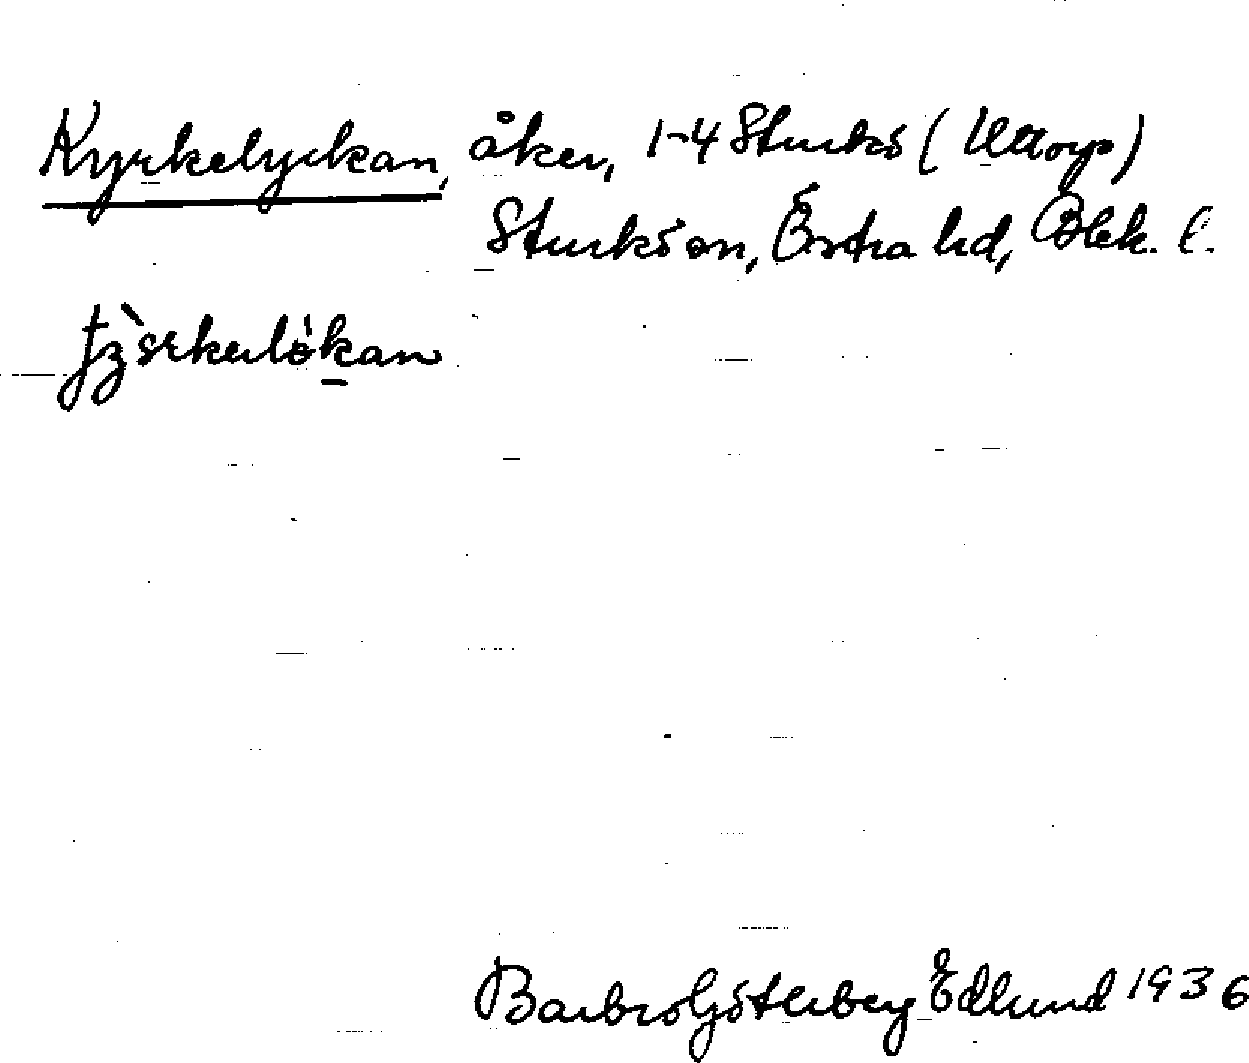 Kyrkelyckan, åker, 1-4 Sturkö (Uttorp)
Sturkö sn, Östra hd, Blek. l.
Barbro Göterberg Edlund 1936